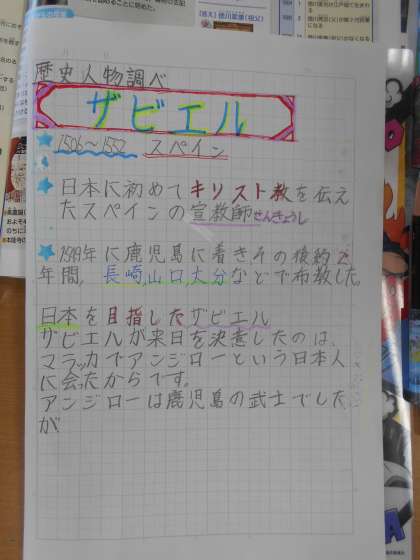 歴史人物調べ
ザビエル
1506〜1552 スペイン
日本に初めてキリスト教を伝え
たスペインの宣教師せんきょうし
1549年に鹿児島に着きその後約2
年間,長崎,山口,大分などで布教した。
日本を目指したザビエル
ザビエルが来日を決意したのは、
マラッカでアンジローという日本人
に会ったからです。
アンジローは鹿児島の武士でした
が